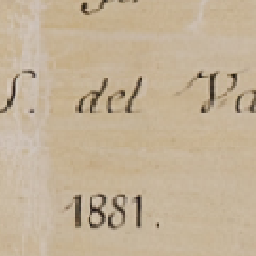 S. del Va
1881.